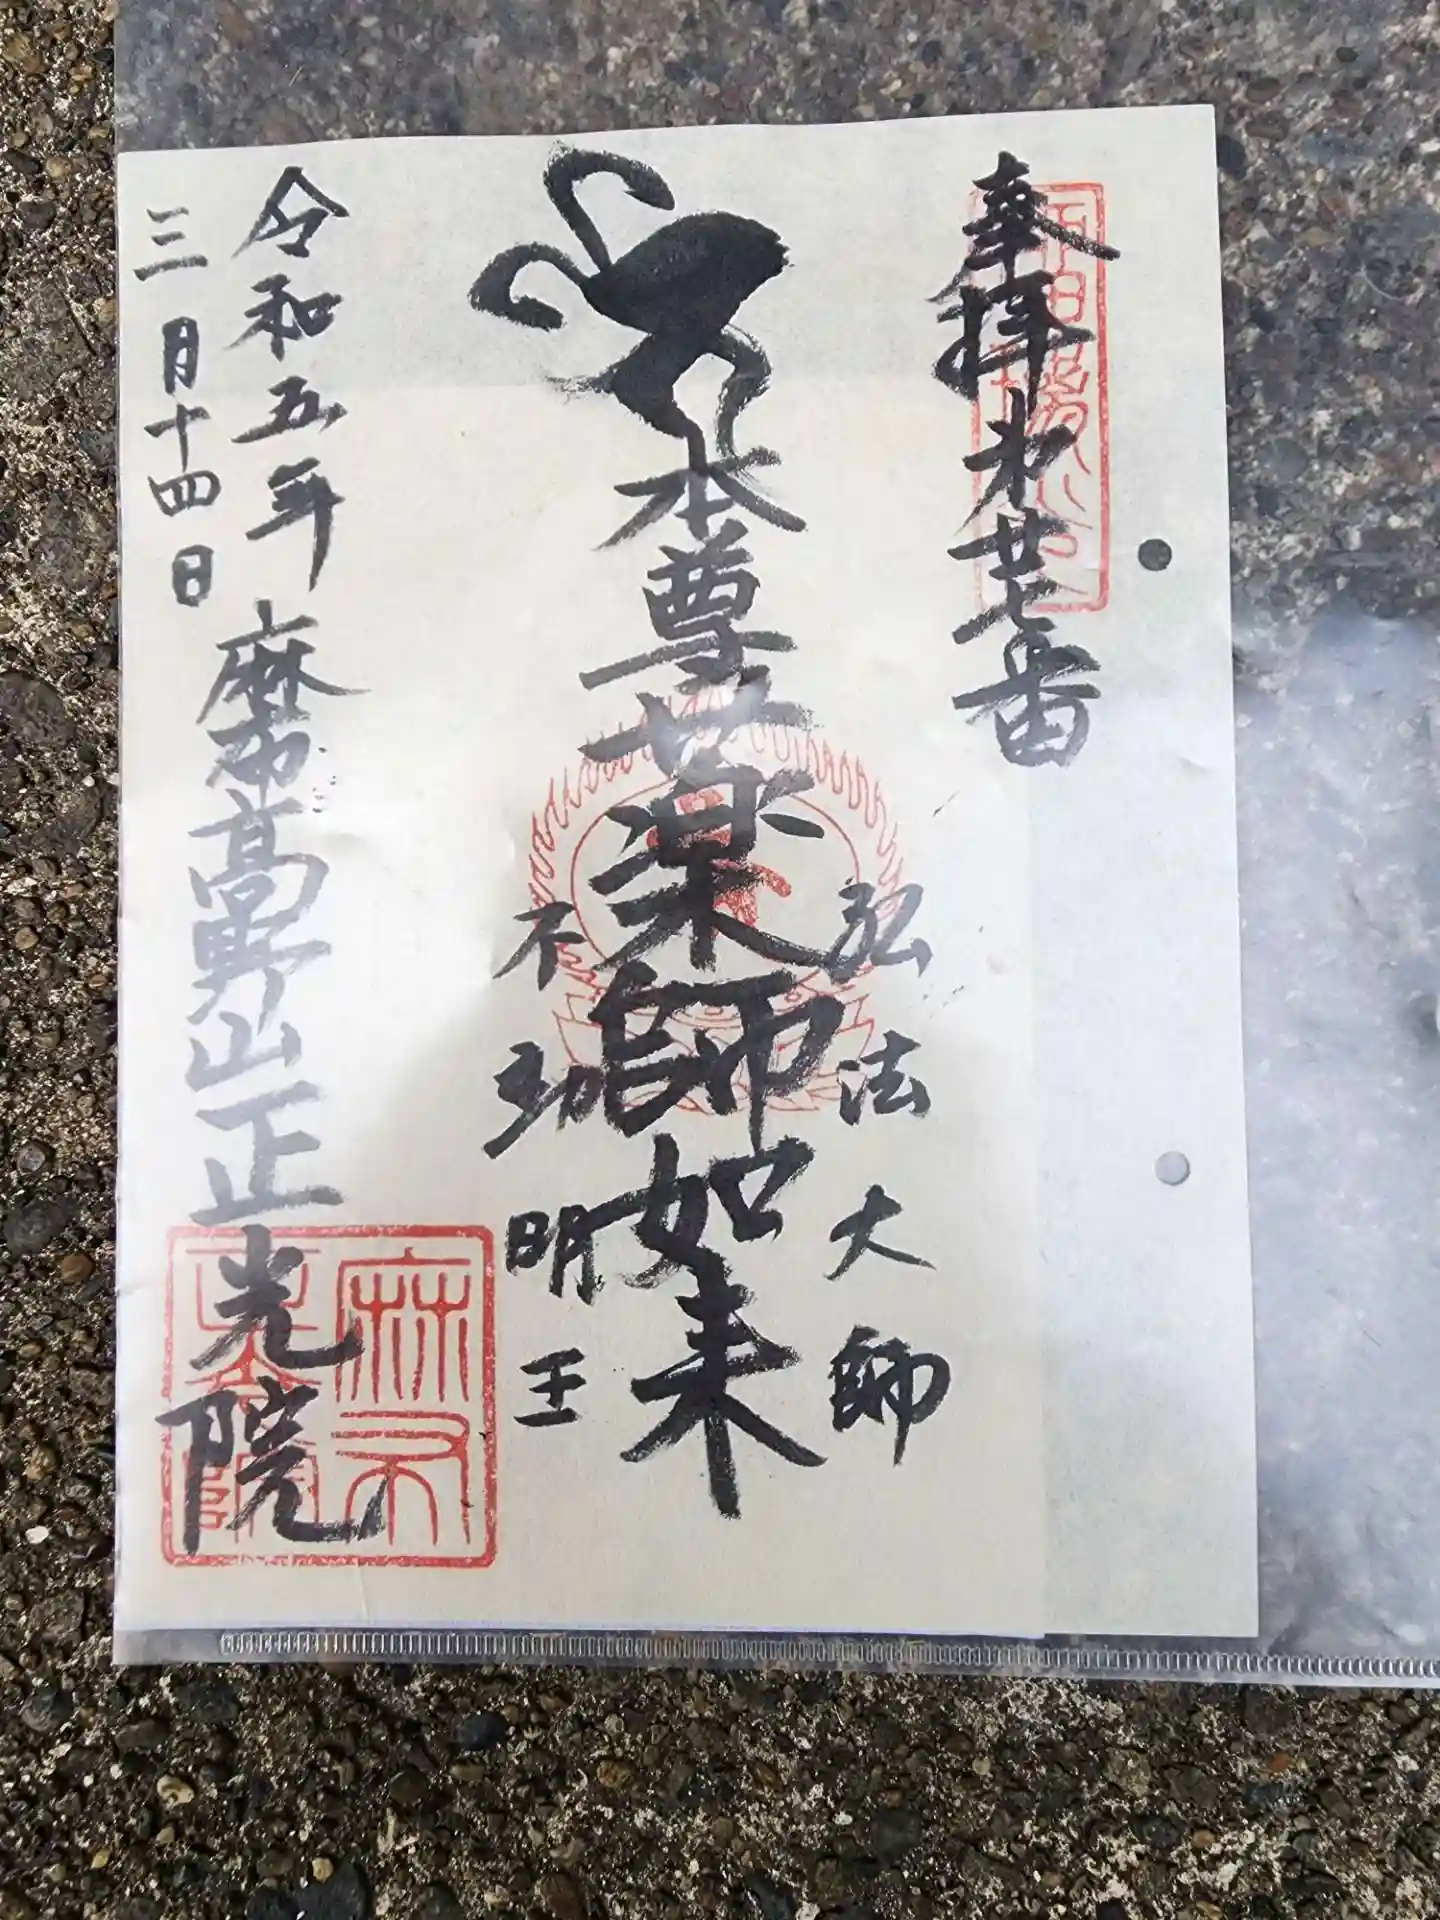 奉拝 第廿七番
弘法大師
本尊 薬師如来
不動明王
令和五年
三月十四日
麻布高野山正光院